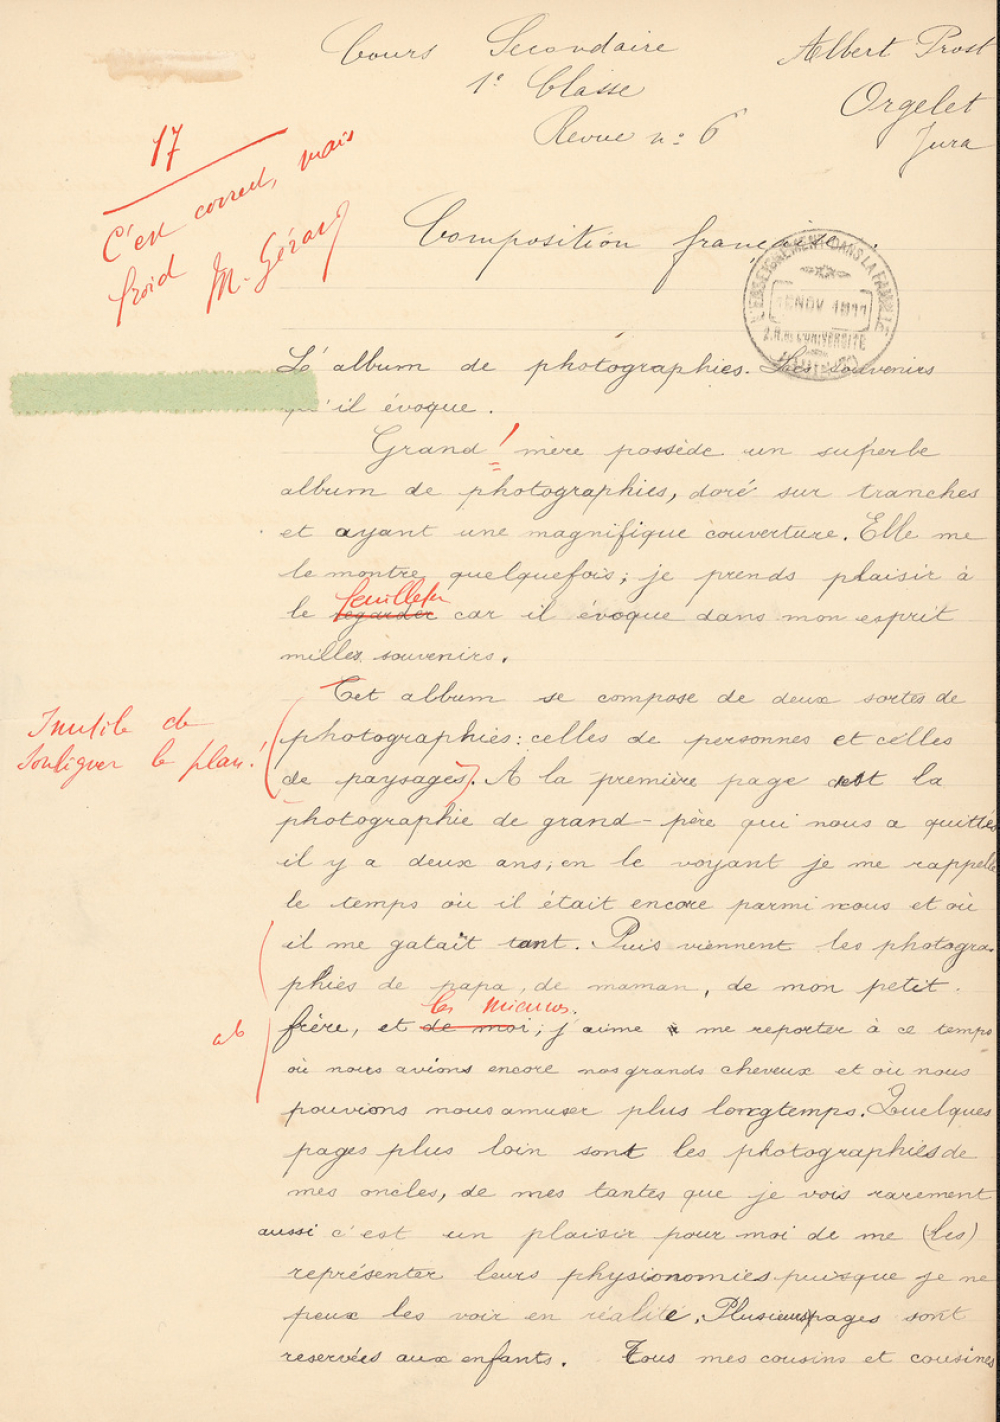 Cours Secondaire
1e Classe
Revue n: 6
Albert Prost
Orgelet
Jura
17
C'est correct, mais
froid M. Gérard
Composition française.
L'ENSEIGNEMENT DANS LA FAMILLE
NOV 1911
2.R. DE L'UNIVERSITÉ
L'album de photographies. Les souvenirs
qu'il évoque.
Grand' mère possède un superbe
album de photographies, doré sur tranches
et ayant une magnifique couverture. Elle me
le montre quelquefois; je prends plaisir à
feuilleter
le regarder car il évoque dans mon esprit
milles souvenirs.
Cet album se compose de deux sortes de
Inutile de
souligner le plan!
photographies: celles de personnes et celles
de paysages. A la première page est la
photographie de grand-père qui nous a quittés
il y a deux ans; en le voyant je me rappelle
le temps où il était encore parmi nous et où
il me gatait tant. Puis viennent les photogra-
phies de papa, de maman, de mon petit
les miennes.
ab
frère, et de moi; j'aime à me reporter à ce temps
où nous avions encore nos grands cheveux et où nous
pouvions nous amuser plus longtemps. Quelques
pages plus loin sont les photographies de
mes oncles, de mes tantes que je vois rarement
aussi c'est un plaisir pour moi de me (les)
représenter leurs physionomies puisque je ne
peux les voir en réalité. Plusieurs pages sont
reservées aux enfants. Tous mes cousins et cousines